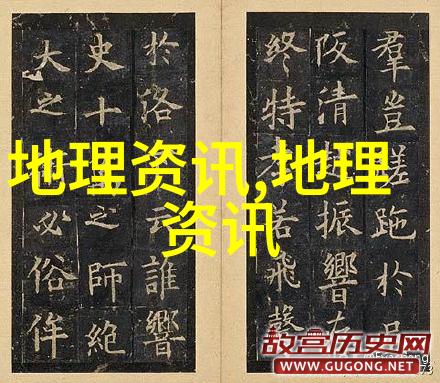 羣豈蹉跎於
阪清振響
終特若飛
於洛誰響
史十之師絶
大之必俗侔
地理资讯,地理
资讯
故宫历史网
WWW.GUGONG.NET